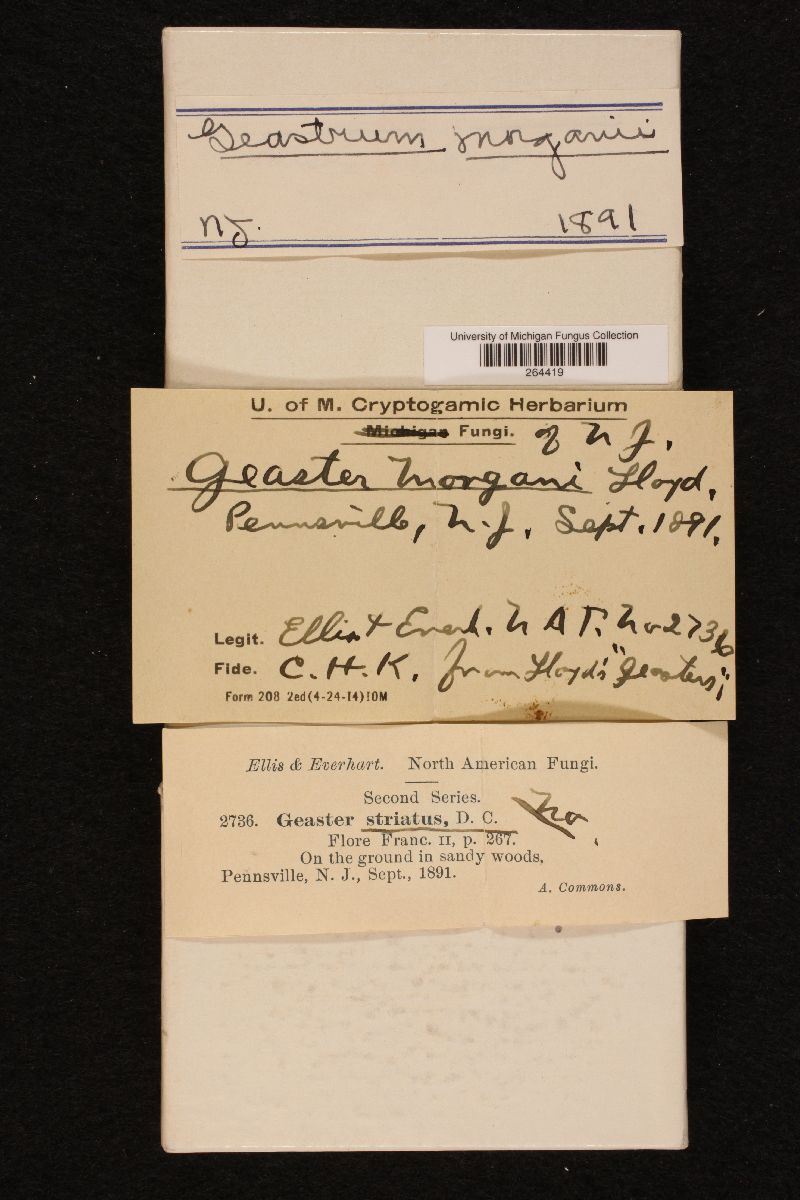 Geastrum morganii
NJ. 1891
University of Michigan Fungus Collection
264419
U. of M. Cryptogamic Herbarium
Michigan Fungi. of N J.
Geaster Morgani Lloyd.
Pennsville, N.J. Sept. 1891.
Legit. Ellis & Everh. N A F. No 2736
Fide. C.H.K. from Lloyd's "Geasters";
Form 208 2ed(4-24-14)10M
Ellis & Everhart. North American Fungi.
Second Series.
2736. Geaster striatus, D. C. No.
Flore Franc. II, p. 267.
On the ground in sandy woods,
Pennsville, N. J., Sept., 1891.
A. Commons.